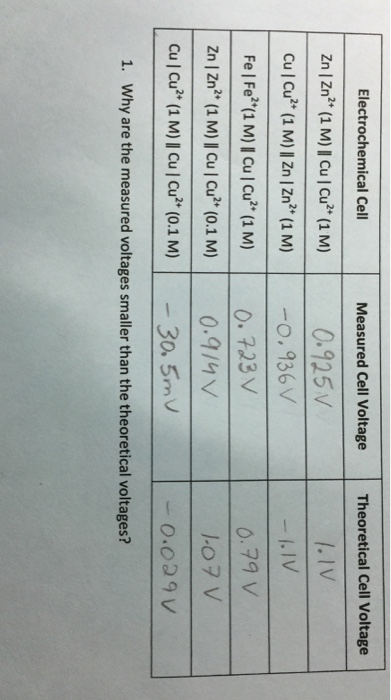 Electrochemical Cell Measured Cell Voltage Theoretical Cell Voltage
Zn | Zn²⁺ (1 M) || Cu | Cu²⁺ (1 M) 0.925 V 1.1V
Cu | Cu²⁺ (1 M) || Zn | Zn²⁺ (1 M) -0.936V -1.1V
Fe | Fe²⁺(1 M) || Cu | Cu²⁺ (1 M) 0.723 V 0.79 V
Zn | Zn²⁺ (1 M) || Cu | Cu²⁺ (0.1 M) 0.914 V 1.07 V
Cu | Cu²⁺ (1 M) || Cu | Cu²⁺ (0.1 M) -30.5mV -0.029V
1. Why are the measured voltages smaller than the theoretical voltages?